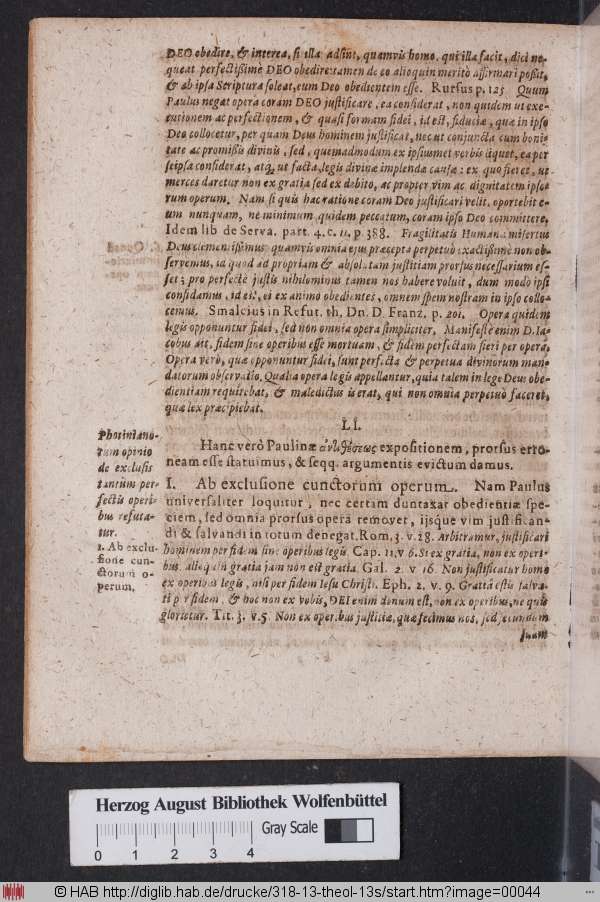 DEO obedire, & interea, si illa adsint, quamvis homo, qui illa facit, dici ne-
queat perfectißimè DEO obedire: tamen de eo alioquin meritò affirmari poßit,
& ab ipsa Scriptura soleat, eum Deo obedientem esse. Rursus p. 125 Quum
Paulus negat opera coram DEO justificare, ea considerat, non quidem ut exe-
cutionem ac perfectionem, & quasi formam fidei, id est, fiduciæ, quæ in ipso
Deo collocetur, per quam Deus hominem justificat, nec ut conjuncta cum boni-
tate ac promißis divinis, sed, quemadmodum ex ipsiusmet verbis liquet, ea per
seipsa considerat, atq; ut facta legis divinæ implendæ causa: ex quo fieret, ut
merces daretur non ex gratia sed ex debito, ac propter vim ac dignitatem ipso-
rum operum. Nam si quis hac ratione coram Deo justificari velit, oportebit e-
um nunquam, ne minimum quidem peccatum, coram ipso Deo committere.
Idem lib de Serva. part. 4. c. 11. p. 388. Fragilitatis Humanæ misertus
Deus clementißimus quamvis omnia ejus præcepta perpetuò exactißimè non ob-
servemus, id quod ad propriam & absolutam justitiam prorsus necessarium es-
set; pro perfectè justis nihilominus tamen nos habere voluit, dum modo ipsi
confidamus, id est, ei ex animo obedientes, omnem spem nostram in ipso collo-
cemus. Smalcius in Refut. th. Dn. D. Franz. p. 201. Opera quidem
legis opponuntur fidei, sed non omnia opera simpliciter. Manifestè enim D. Ia-
cobus ait, fidem sine operibus esse mortuam, & fidem perfectam fieri per opera,
Opera verò, quæ opponuntur fidei, sunt perfecta & perpetua divinorum man-
datorum observatio, Qualia opera legis appellantur, quia talem in lege Deus obe-
dientiam requirebat, & maledictus is erat, qui non omnia perpetuò faceret,
quæ lex præcipiebat.
LI.
Hanc verò Paulinæ ἀντιθέσεως expositionem, prorsus erro-
neam esse statuimus, & seqq. argumentis evictum damus.
Photiniano-
rum opinio
de exclusis
tantùm per-
fectis operi-
bus refuta-
tur.
1. Ab exclu-
sione cun-
ctorum o-
perum.
I. Ab exclusione cunctorum operum. Nam Paulus
universaliter loquitur, nec certam duntaxat obedientiæ spe-
ciem, sed omnia prorsus opera removet, iisque vim justifican-
di & salvandi in totum denegat. Rom. 3. v. 28. Arbitramur, justificari
hominem per fidem sine operibus legis. Cap. 11. v 6. Si ex gratia, non ex operi-
bus. alioquin gratia jam non est gratia. Gal. 2. v 16. Non justificatur homo
ex operibus legis, nisi per fidem Iesu Christi. Eph. 2. v. 9. Gratiâ estis salva-
ti per fidem, & hoc non ex vobis, DEI enim donum est, non ex operibus, ne quis
glorietur. Tit. 3. v. 5. Non ex operibus justitiæ, quæ fecimus nos, sed secundum
suam
Herzog August Bibliothek Wolfenbüttel
Gray Scale
0 1 2 3 4
© HAB http://diglib.hab.de/drucke/318-13-theol-13s/start.htm?image=00044